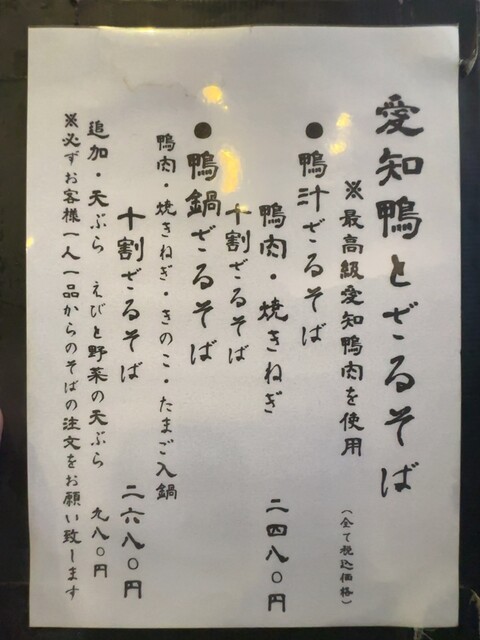 愛知鴨とざるそば
※最高級愛知鴨肉を使用
(全て税込価格)
●鴨汁ざるそば
鴨肉・焼きねぎ
二四八〇円
十割ざるそば
●鴨鍋ざるそば
鴨肉・焼きねぎ・きのこ・たまご入鍋
十割ざるそば
二六八〇円
追加・天ぷら えびと野菜の天ぷら 九八〇円
※必ずお客様一人一品からのそばの注文をお願い致します